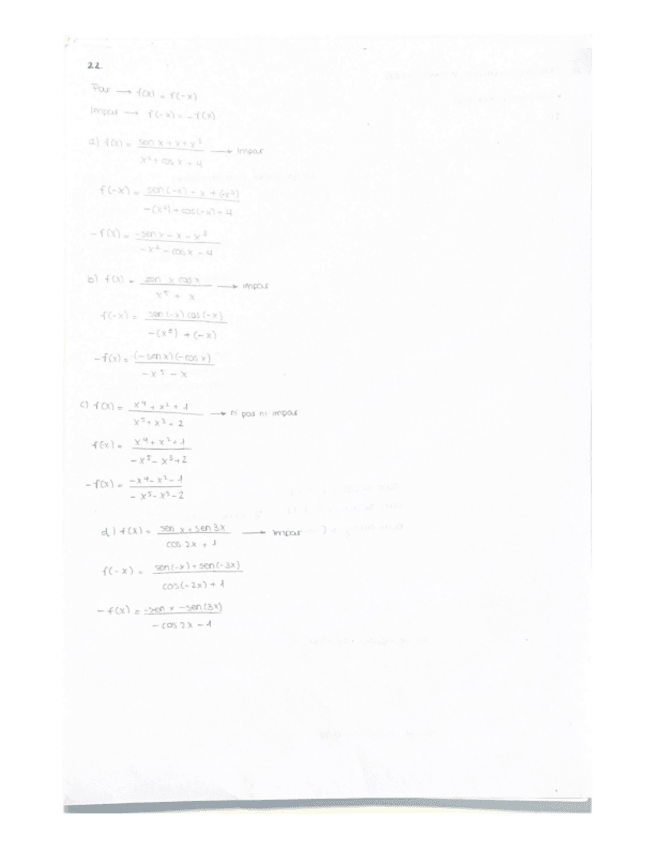 22.
Par → f(x) = f(-x)
Impar → f(-x) = -f(x)
a) f(x) = (sen x + x + x³) / (x² + cos x + 4) → impar
f(-x) = (sen(-x) - x + (-x³)) / (-(x²) + cos(-x) + 4)
-f(x) = (-sen x - x - x³) / (-x² - cos x - 4)
b) f(x) = (sen x cos x) / (x⁵ + x) → impar
f(-x) = (sen(-x) cos(-x)) / (-(x⁵) + (-x))
-f(x) = ((-sen x)(-cos x)) / (-x⁵ - x)
c) f(x) = (x⁴ + x² + 1) / (x⁵ + x³ + 2) → ni par ni impar
f(-x) = (x⁴ + x² + 1) / (-x⁵ - x³ + 2)
-f(x) = (-x⁴ - x² - 1) / (-x⁵ - x³ - 2)
d) f(x) = (sen x + sen 3x) / (cos 2x + 1) → Impar
f(-x) = (sen(-x) + sen(-3x)) / (cos(-2x) + 1)
-f(x) = (-sen x - sen(3x)) / (-cos 2x - 1)